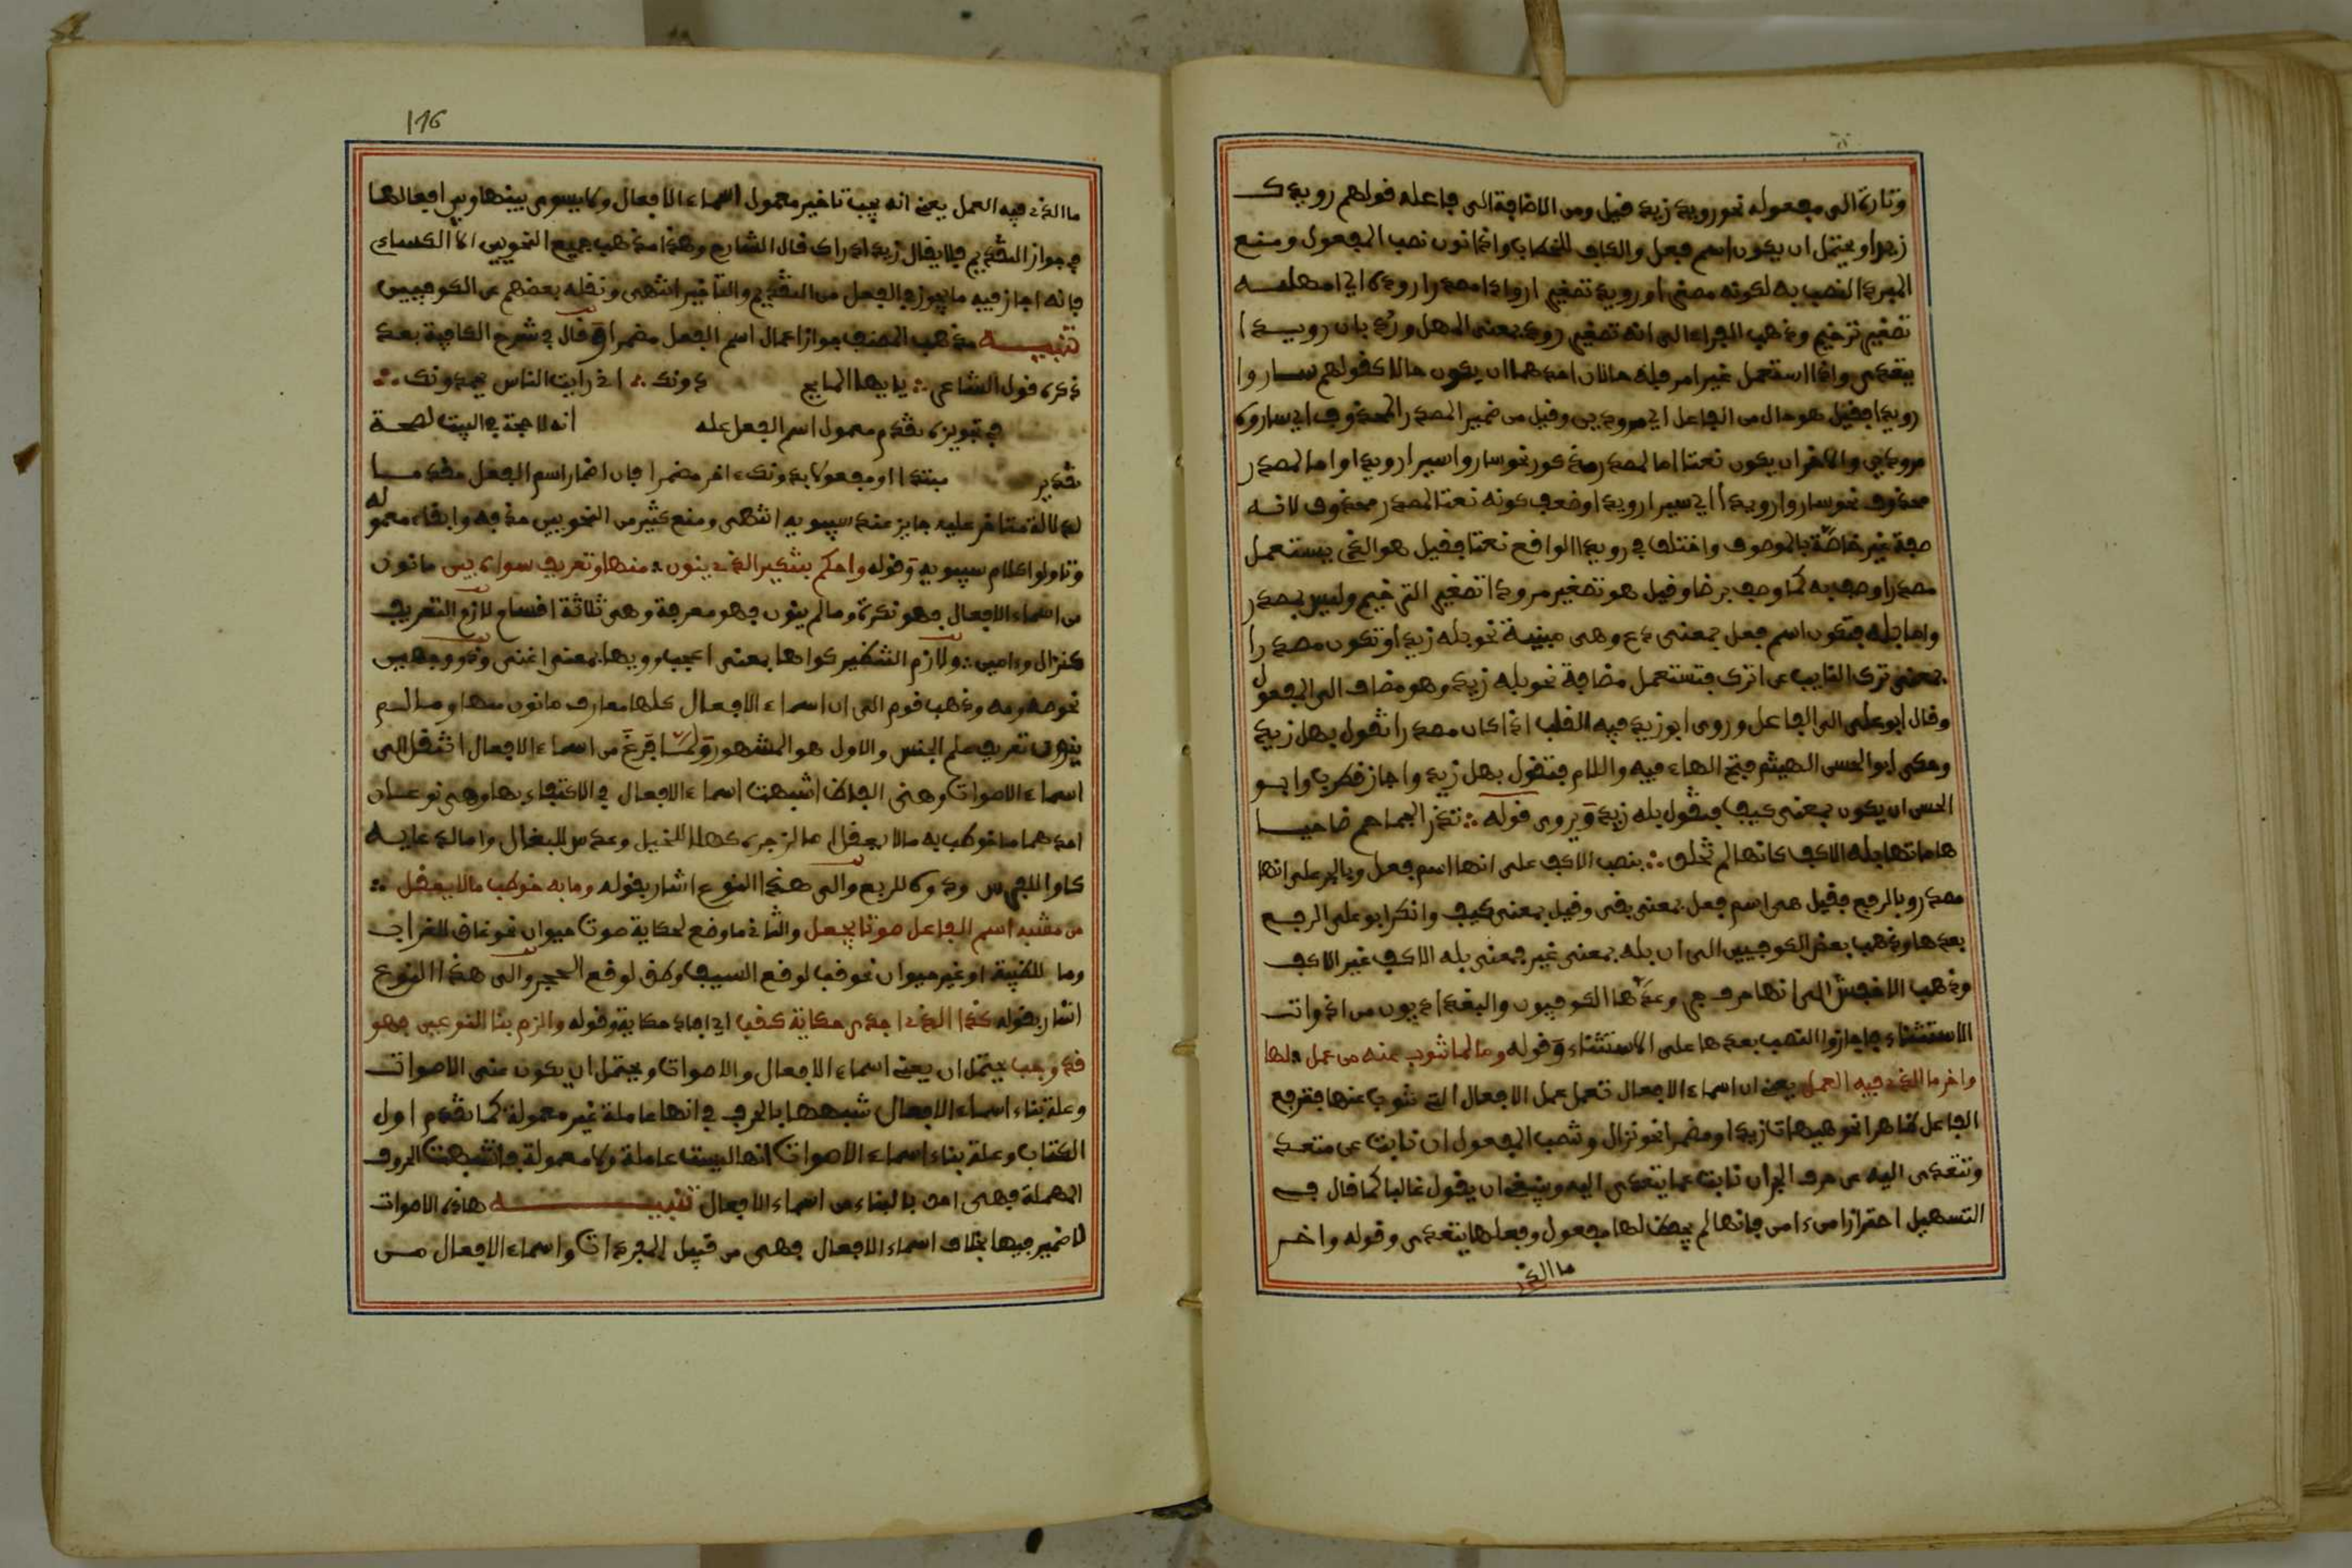 وتارة الى مفعوله نحو رويد زيد قيل ومن الاضافة الى فاعله قولهم رويدك
زيدا ويحتمل ان يكون اسم فعل والكاف للخطاب واذا نون نصب المفعول ومنع
المبرد النصب به لكونه مصغرا ورويد تصغير ارواد مصدر ارود اي امهل
تصغير ترخيم وذهب الفراء الى انه تصغير رود بمعنى المهل ورد بان رويدا
يتعدى واذا استعمل غير امر فله حالان احدهما ان يكون حالا كقولهم ساروا
رويدا فقيل هو حال من الفاعل اي مرودين وقيل من ضمير المصدر المحذوف اي ساروه
مرودين والاخر ان يكون نعتا اما لمصدر مذكور نحو ساروا سيرا رويدا واما لمصدر
محذوف نحو ساروا رويدا اي سيرا رويدا وضعف كونه نعتا لمصدر محذوف لانه
صفة غير خاصة بالموصوف واختلف في رويدا الواقع نعتا فقيل هو الذي يستعمل
مصدرا وصف به كما وصف برضا وقيل هو تصغير مرود تصغير الترخيم وليس بمصدر
واما بله فتكون اسم فعل بمعنى دع وهي مبنية نحو بله زيدا وتكون مصدرا
بمعنى ترك النايب عن اترك فتستعمل مضافة نحو بله زيد وهو مضاف الى المفعول
وقال ابو علي الى الفاعل وروى ابو زيد فيه القلب اذا كان مصدرا تقول بهل زيد
وحكى ابو الحسن الهيثم فتح الهاء فيه واللام فتقول بهل زيد واجاز قطرب وابو
الحسن ان يكون بمعنى كيف فتقول بله زيد ويروى قوله ∴ تذر الجماجم ضاحيا
هاماتها بله الاكف كانها لم تخلق ∴ بنصب الاكف على انها اسم فعل وبالجر على انها
مصدر وبالرفع فقيل هي اسم فعل بمعنى بقى وقيل بمعنى كيف وانكر ابو علي الرفع
بعدها وذهب بعض الكوفيين الى ان بله بمعنى غير فمعنى بله الاكف غير الاكف
وذهب الاخفش الى انها حرف جر وعدها الكوفيون والبغداديون من ادوات
الاستثناء فاجازوا النصب بعدها على الاستثناء وقوله وما لما تنوب عنه من عمل لها
واخر ما الذي فيه العمل يعني ان اسماء الافعال تعمل عمل الافعال التي تنوب عنها فترفع
الفاعل ظاهرا نحو هيهات زيد او مضمرا نحو نزال وتنصب المفعول ان نابت عن متعد
وتتعدى اليه بحرف الجر ان نابت عما يتعدى اليه وينبغي ان يقول غالبا كما قال في
التسهيل احترازا من ءامين فانها لم يحفظ لها مفعول وفعلها يتعدى وقوله واخر
ما الذي
116
ما الذي فيه العمل يعني انه يجب تاخير معمول اسماء الافعال ولا يسوى بينها وبين افعالها
في جواز التقديم فلا يقال زيدا دراك قال الشارح وهذا مذهب جميع النحويين الا الكسائي
فانه اجاز فيه ما يجوز في الفعل من التقديم والتاخير انتهى ونقله بعضهم عن الكوفيين
تنبيه مذهب المصنف جواز اعمال اسم الفعل مضمرا وقال في شرح الكافية بعد
ذكره قول الشاعر ∴ يا ايها المايح دونك ∴ اني رايت الناس يحمدونك ∴
في تجويزه تقدم معمول اسم الفعل عليه انه لا حجة في البيت لصحة
تقدير مبتدا او مفعولا بدونك ءاخر مضمرا فان اضمار اسم الفعل مقدما
لدلالة متاخر عليه جايز عند سيبويه انتهى ومنع كثير من النحويين حذفه وابقاء معموله
وتاولوا كلام سيبويه وقوله واحكم بتنكير الذي ينون منها وتعريف سواه بين ما نون
من اسماء الافعال فهو نكرة وما لم ينون فهو معرفة وهي ثلاثة اقسام لازم التعريف
كنزال وءامين ∴ ولازم التنكير كواها بمعنى اعجب وويها بمعنى اغنى وذو وجهين
نحو صه ومه وذهب قوم الى ان اسماء الافعال كلها معارف ما نون منها وما لم
ينون تعريف علم الجنس والاول هو المشهور ولما فرغ من اسماء الافعال انتقل الى
اسماء الاصوات وهي الفاظ اشبهت اسماء الافعال في الاكتفاء بها وهي نوعان
احدهما ما خوطب به ما لا يعقل اما لزجره كهلا للخيل وعدس للبغال واما لدعايه
كاو للفرس ودوه للربع والى هذا النوع اشار بقوله وما به خوطب ما لا يعقل ∴
من مشبه اسم الفاعل صوتا يجعل والثاني ما وضع لحكاية صوت حيوان نحو غاق للغراب
وما للظبية او غير حيوان نحو قب لوقع السيف وطق لوقع الحجر والى هذا النوع
اشار بقوله كذا الذي اجدى حكاية كقب اي افاد حكاية وقوله والزم بنا النوعين فهو
قد وجب يحتمل ان يعني اسماء الافعال والاصوات ويحتمل ان يكون عنى الاصوات
وعلة بناء اسماء الافعال شبهها بالحرف في انها عاملة غير معمولة كما تقدم اول
الكتاب وعلة بناء اسماء الاصوات انها ليست عاملة ولا معمولة فاشبهت الحروف
المهملة فهي احق بالبناء من اسماء الافعال تنبيه هذه الاصوات
لا ضمير فيها بخلاف اسماء الافعال فهي من قبيل المفردات واسماء الافعال من